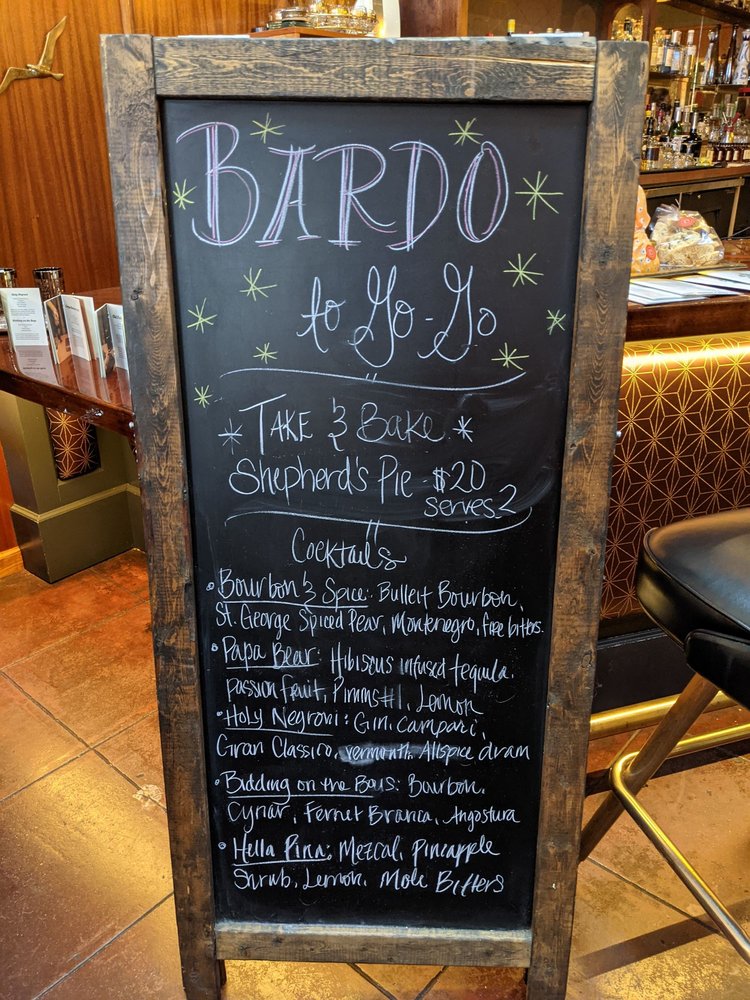 BARDO
to Go-Go
TAKE & Bake
Shepherd's Pie - $20
serves 2
Cocktails
Bourbon & Spice: Bulleit Bourbon,
St. George Spiced Pear, Montenegro, fire bitters.
Papa Bear: Hibiscus infused tequila,
passion fruit, Pimms #1, Lemon
Holy Negroni: Gin, Campari,
Gran Classico, vermouth, Allspice dram
Bidding on the Boys: Bourbon,
Cynar, Fernet Branca, Angostura
Hella Pina: Mezcal, Pineapple
Shrub, Lemon, Mole Bitters